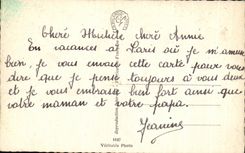 Chère Huhette chère Annie
En vacances à Paris où je m'amuse
bien, je vous envoie cette carte pour vous
dire que je pense toujours à vous deux
et je vous embrasse bien fort ainsi que
votre maman et votre papa.
Jeanine
Véritable Photo